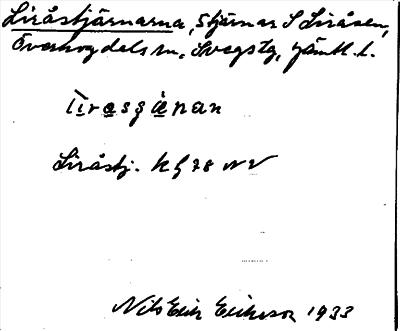 Liråstjärnarna, tjärnar S Liråsen,
Överhogdals sn, Svegs tg, Jämtl. l.
Liråstj. kg 78 NV
Nils Erik Eriksson 1933